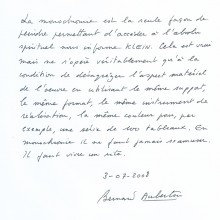 La monochromie est la seule façon de
peindre permettant d'accéder à l'absolu
spirituel nous informe KLEIN. Cela est vrai
mais ne s'opère véritablement qu'à la
condition de désagréger l'aspect matériel
de l'œuvre en utilisant le même support,
le même format, le même instrument de
réalisation, la même couleur pour, par
exemple, une série de 100 tableaux. En
monochromie il ne faut jamais s'amuser.
Il faut vivre un rite.
3-07-2008
Bernard Aubertin